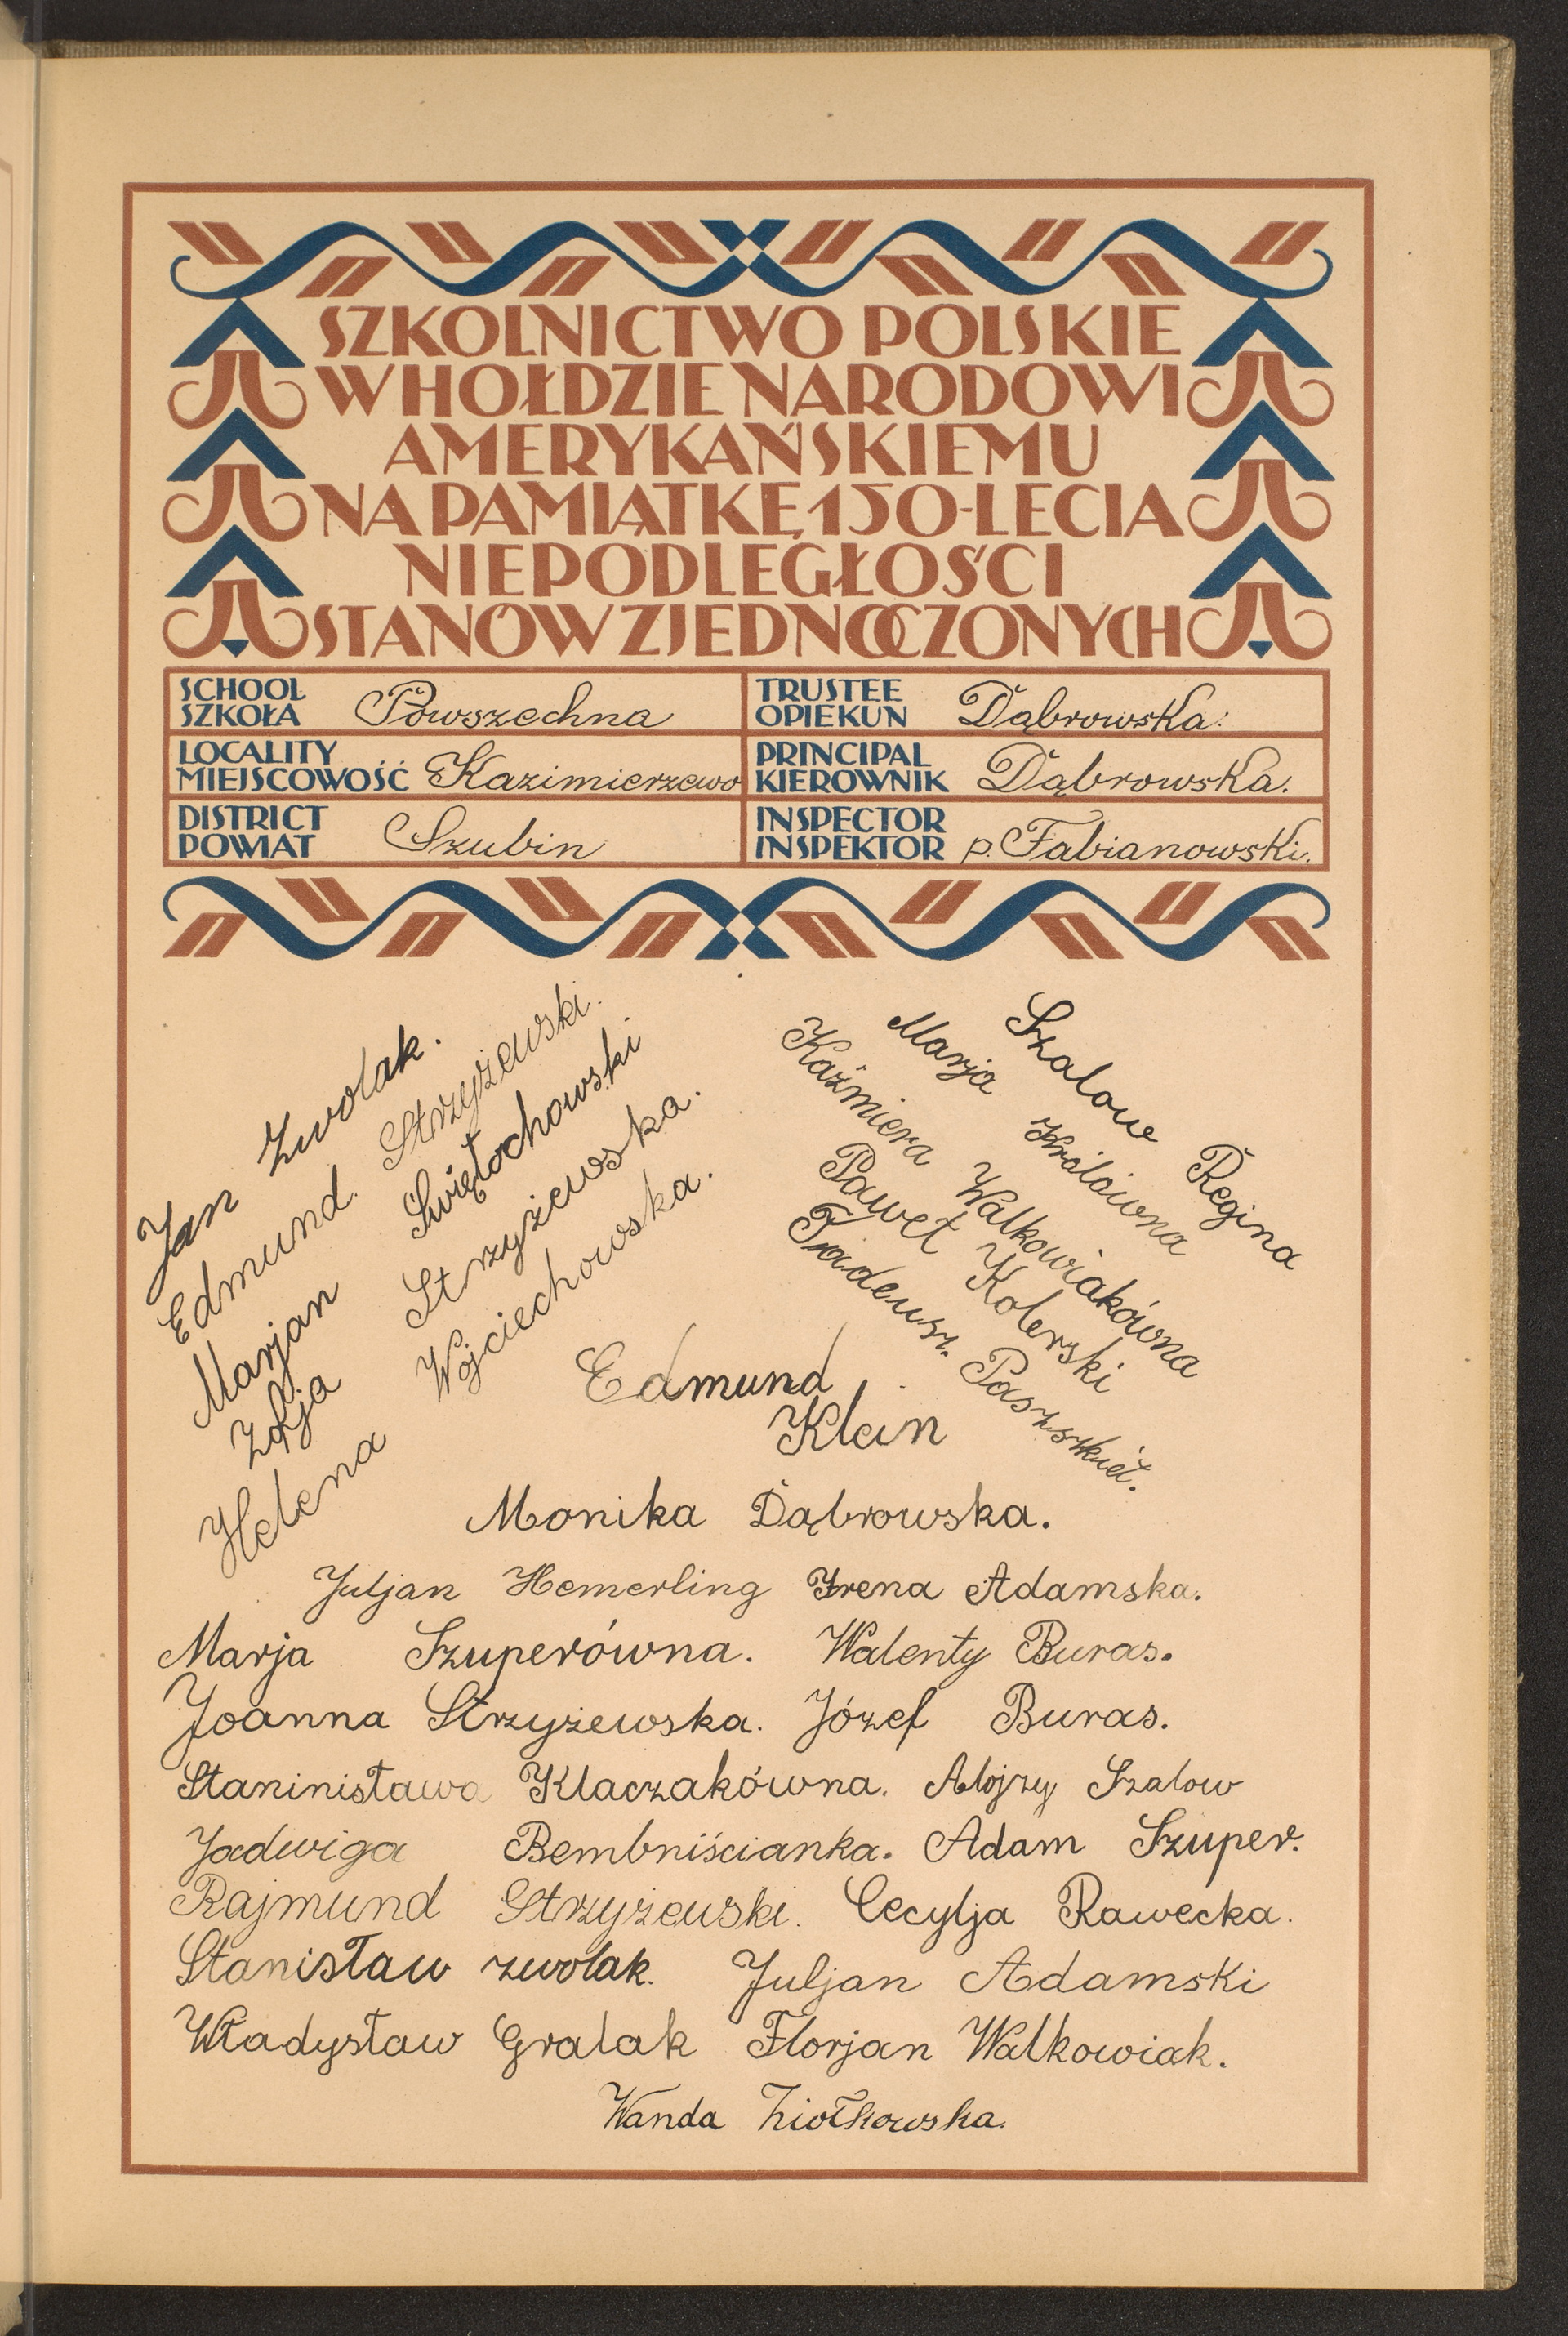 SZKOLNICTWO POLSKIE
W HOŁDZIE NARODOWI
AMERYKAŃSKIEMU
NA PAMIĄTKĘ 150-LECIA
NIEPODLEGŁOŚCI
STANÓW ZJEDNOCZONYCH
SCHOOL
SZKOŁA Powszechna
TRUSTEE
OPIEKUN Dąbrowska.
LOCALITY
MIEJSCOWOŚĆ Kazimierzewo
PRINCIPAL
KIEROWNIK Dąbrowska.
DISTRICT
POWIAT Szubin
INSPECTOR
INSPEKTOR p. Fabianowski.
Jan Zwolak.
Edmund Strzyżewski.
Marjan Świętochowski
Zofja Strzyżewska.
Helena Wojciechowska.
Szalow Regina
Marja Królówna
Kaźmiera Walkowiakówna
Paweł Kolerski
Tadeusz. Paszszkiet.
Edmund
Klein
Monika Dąbrowska.
Juljan Hemerling Irena Adamska.
Marja Szuperówna. Walenty Buras.
Joanna Strzyżewska. Józef Buras.
Staninisława Klaczakówna. Alojzy Szalow
Jadwiga Bembniścianka. Adam Szuper.
Rajmund Strzyżewski. Cecylja Rawecka.
Stanisław zwolak. Juljan Adamski
Władysław Gralak Florjan Walkowiak.
Wanda Ziołkowska.